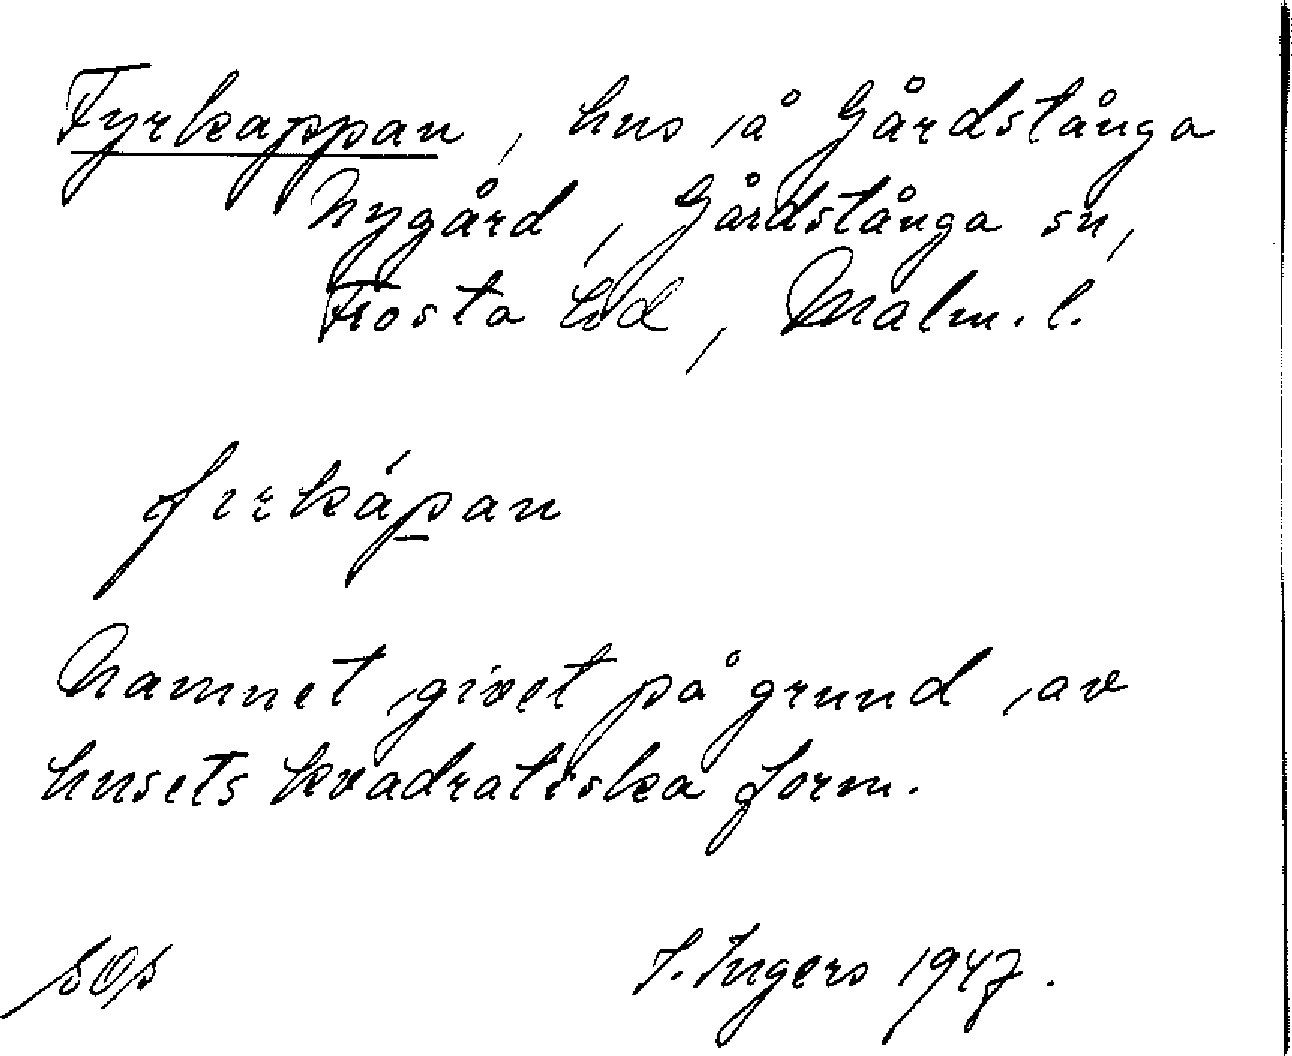 Fyrkappan, hus å Gårdstånga
Nygård, Gårdstånga sn,
Frosta hd, Malm. l.
firkápan
Namnet givet på grund av
husets kvadratiska form.
I. Ingers 1947.